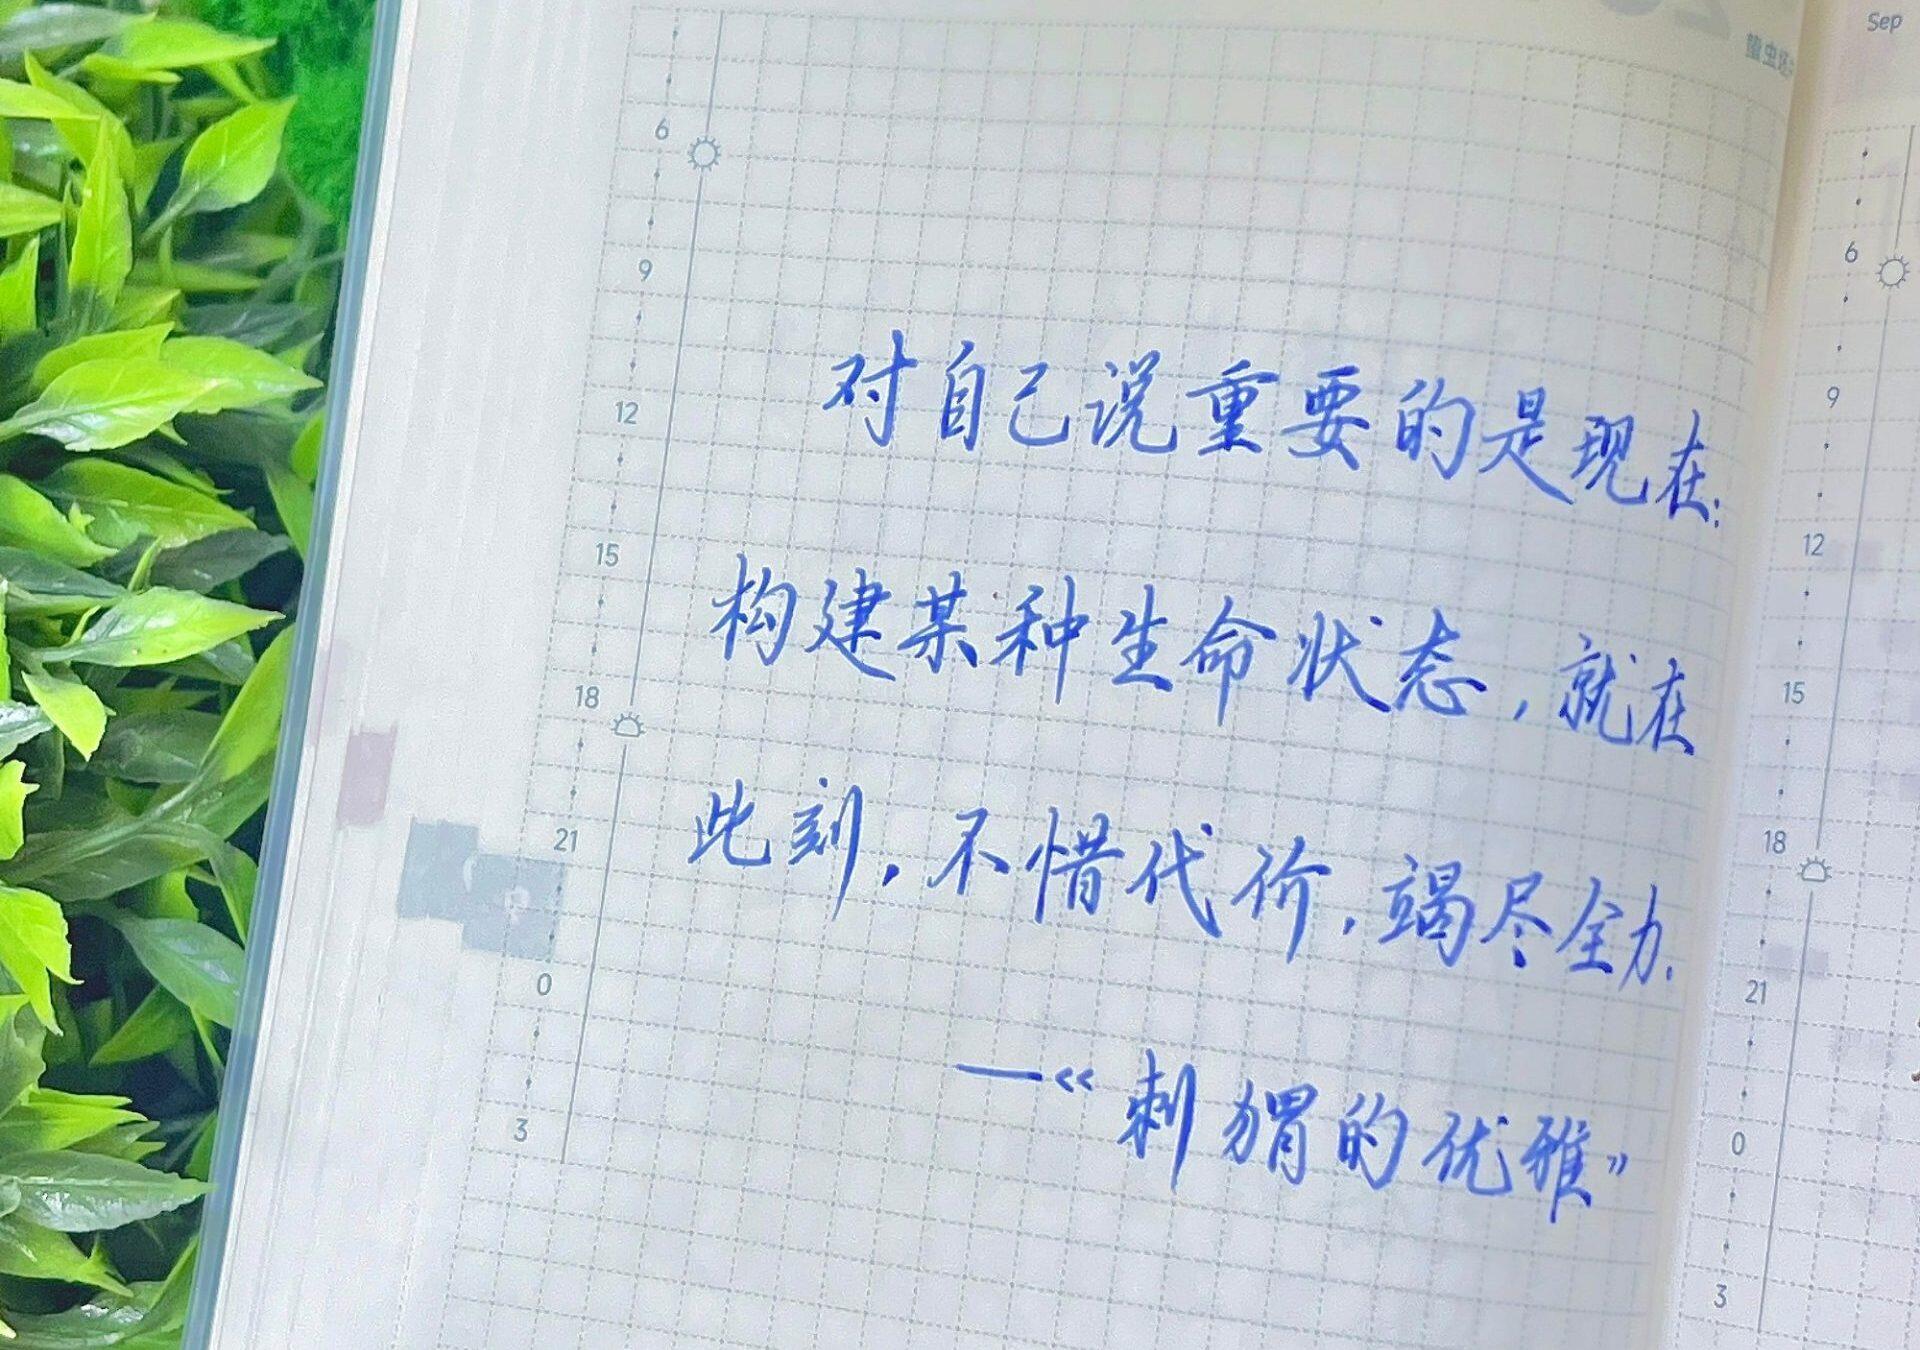 Sep
6
9
12
15
18
21
0
3
对自己说重要的是现在:
构建某种生命状态,就在
此刻,不惜代价,竭尽全力.
—《刺猬的优雅》
6
9
12
15
18
21
0
3